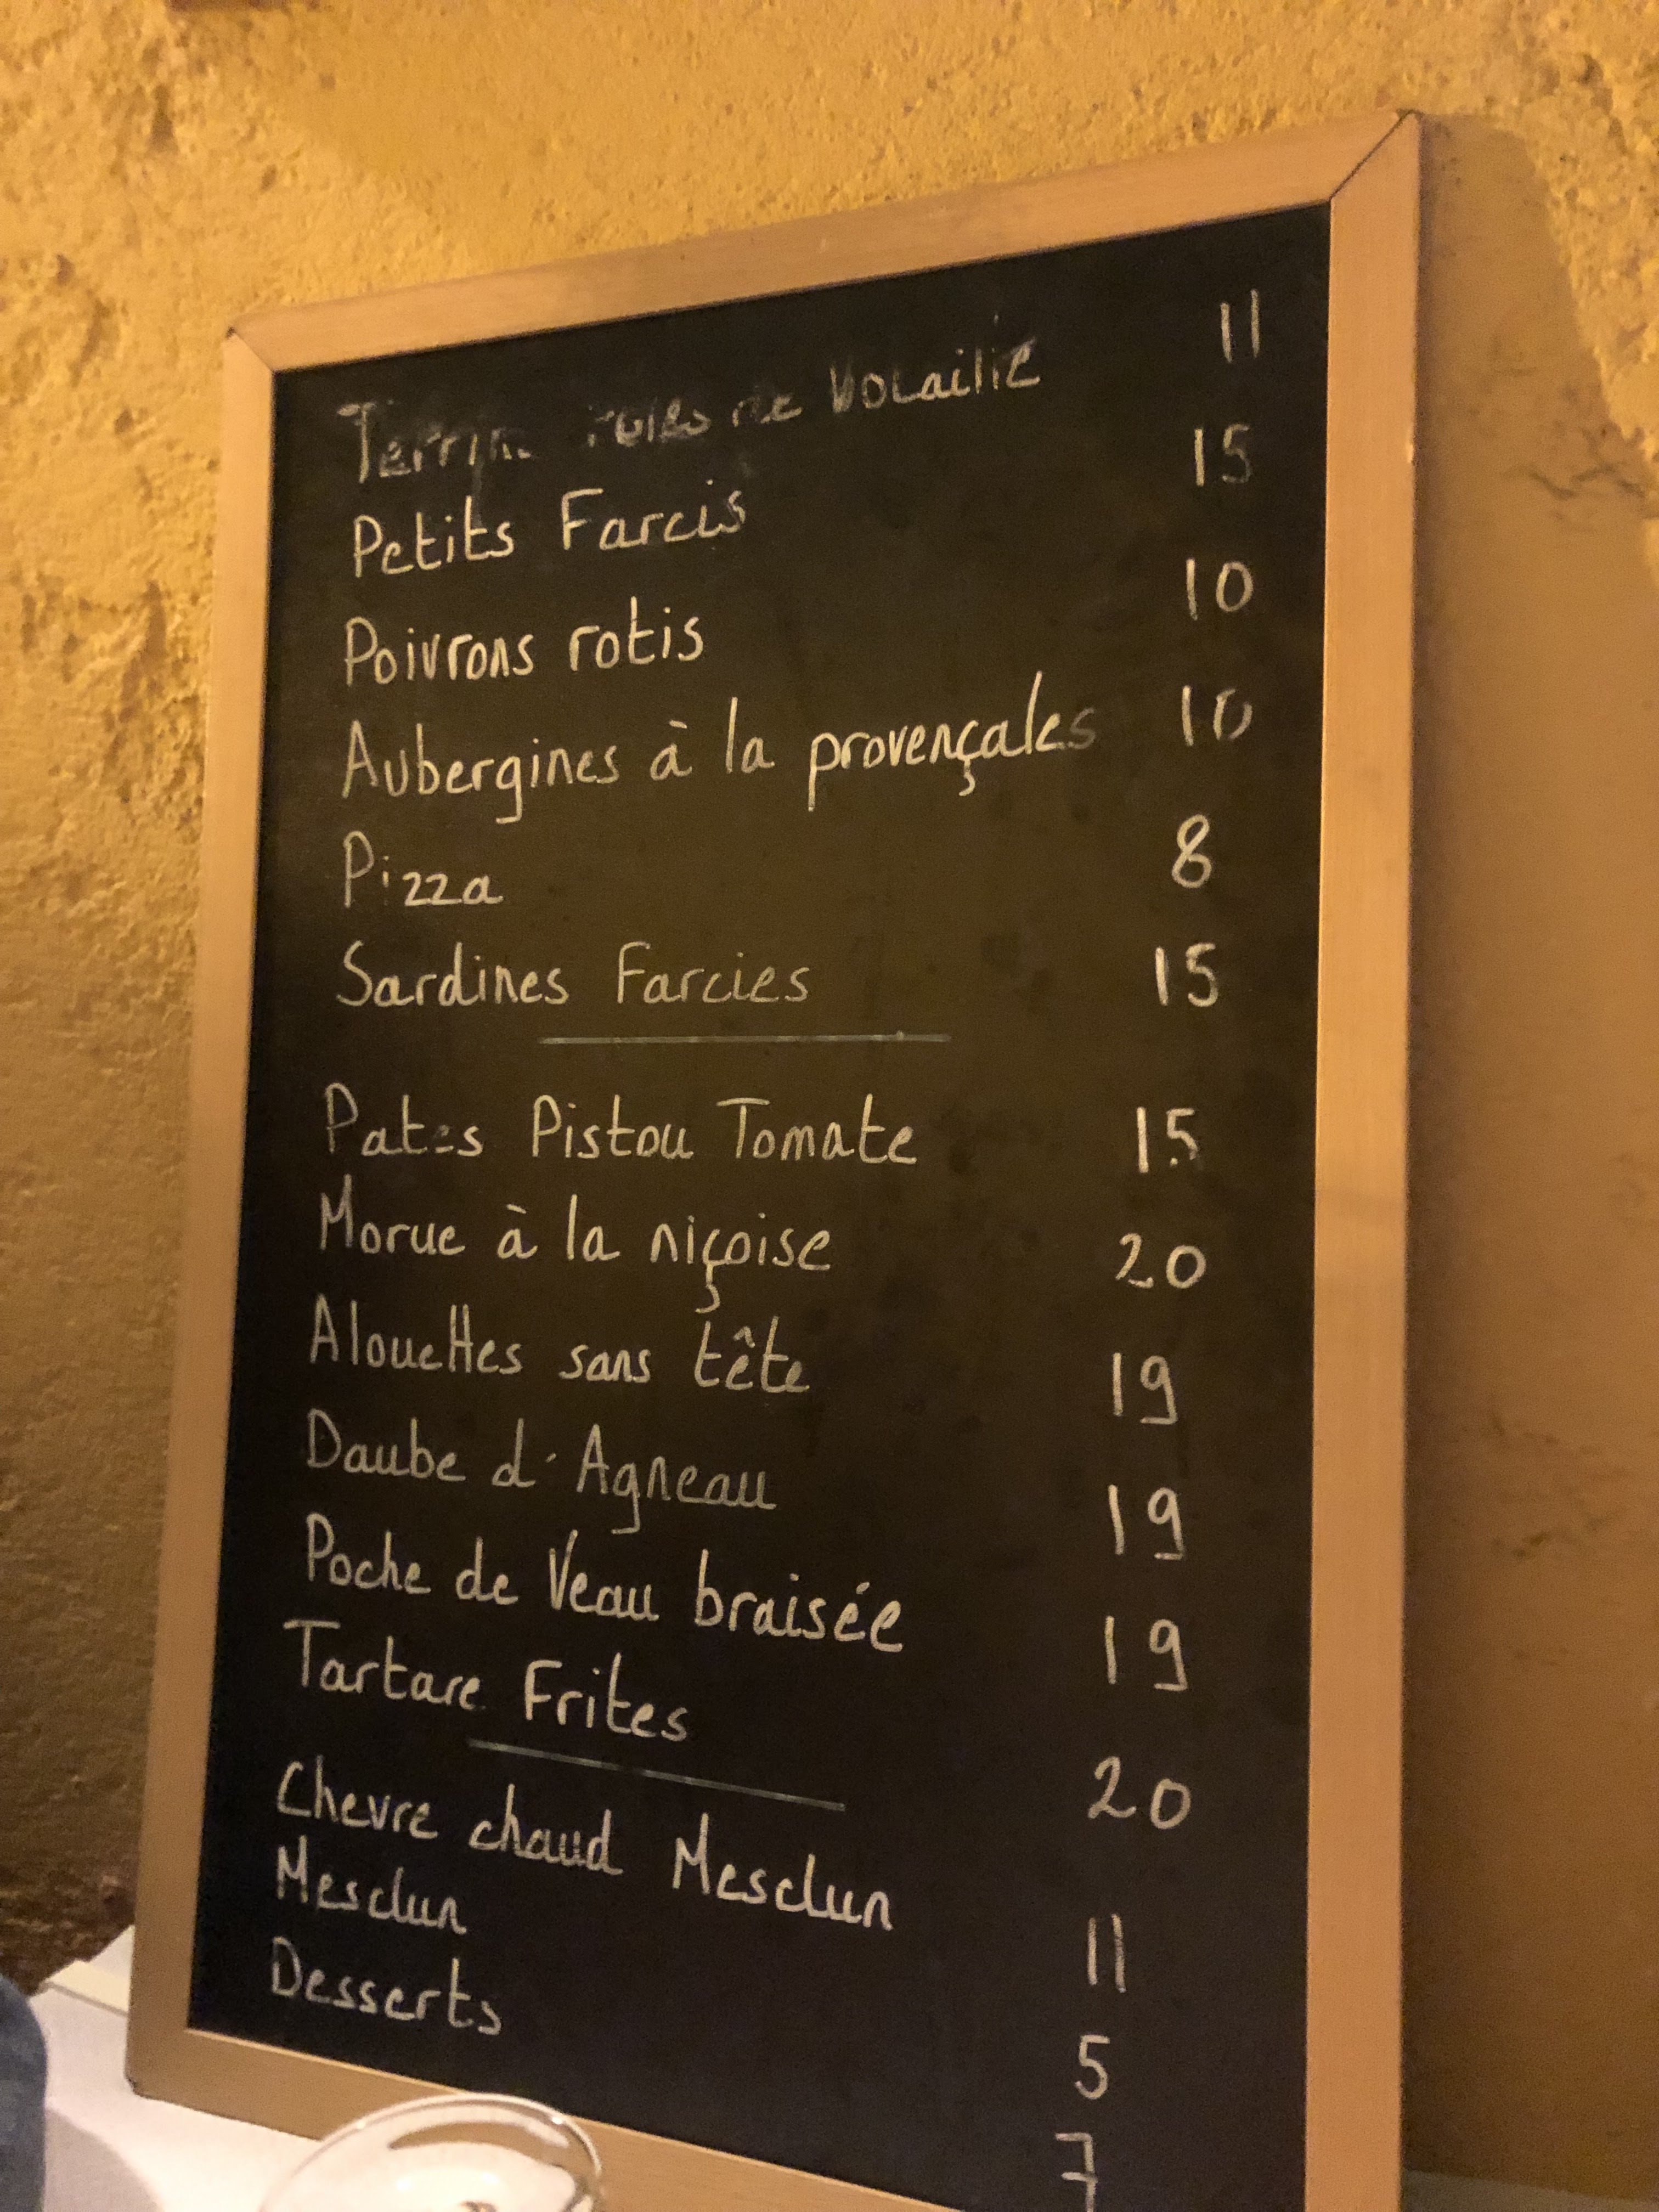 Terrine Foies de Volaille 11
Petits Farcis 15
Poivrons rotis 10
Aubergines à la provençales 10
Pizza 8
Sardines Farcies 15
Pates Pistou Tomate 15
Morue à la niçoise 20
Alouettes sans tête 19
Daube d'Agneau 19
Poche de Veau braisée 19
Tartare Frites 20
Chevre chaud Mesclun 11
Mesclun 5
Desserts 7